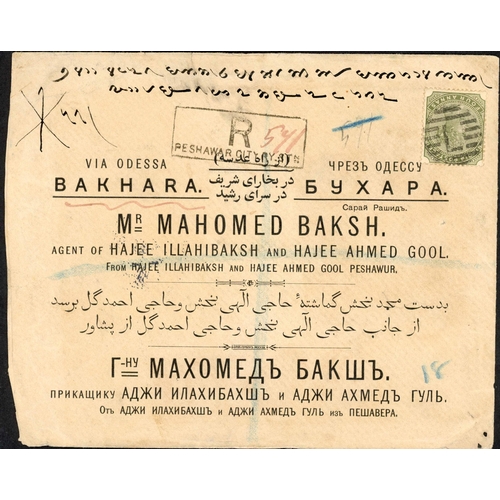 R
541
PESHAWAR CITY RY. STN
VIA ODESSA
ЧРЕЗЪ ОДЕССУ
(از راه عدیسه)
BAKHARA.
در بخارای شریف
БУХАРА.
در سرای رشید
Сарай Рашидъ.
MR MAHOMED BAKSH.
AGENT OF HAJEE ILLAHIBAKSH AND HAJEE AHMED GOOL.
FROM HAJEE ILLAHIBAKSH AND HAJEE AHMED GOOL PESHAWUR.
بدست محمد بخش گماشتهٔ حاجی آلهی بخش وحاجی احمد گل برسد
از جانب حاجی آلهی بخش وحاجی احمد گل از پشاور
Г-НУ МАХОМЕДЪ БАКШЪ.
ПРИКАЩИКУ АДЖИ ИЛАХИБАХШЪ и АДЖИ АХМЕДЪ ГУЛЬ.
Отъ АДЖИ ИЛАХИБАХШЪ и АДЖИ АХМЕДЪ ГУЛЬ изъ ПЕШАВЕРА.
18